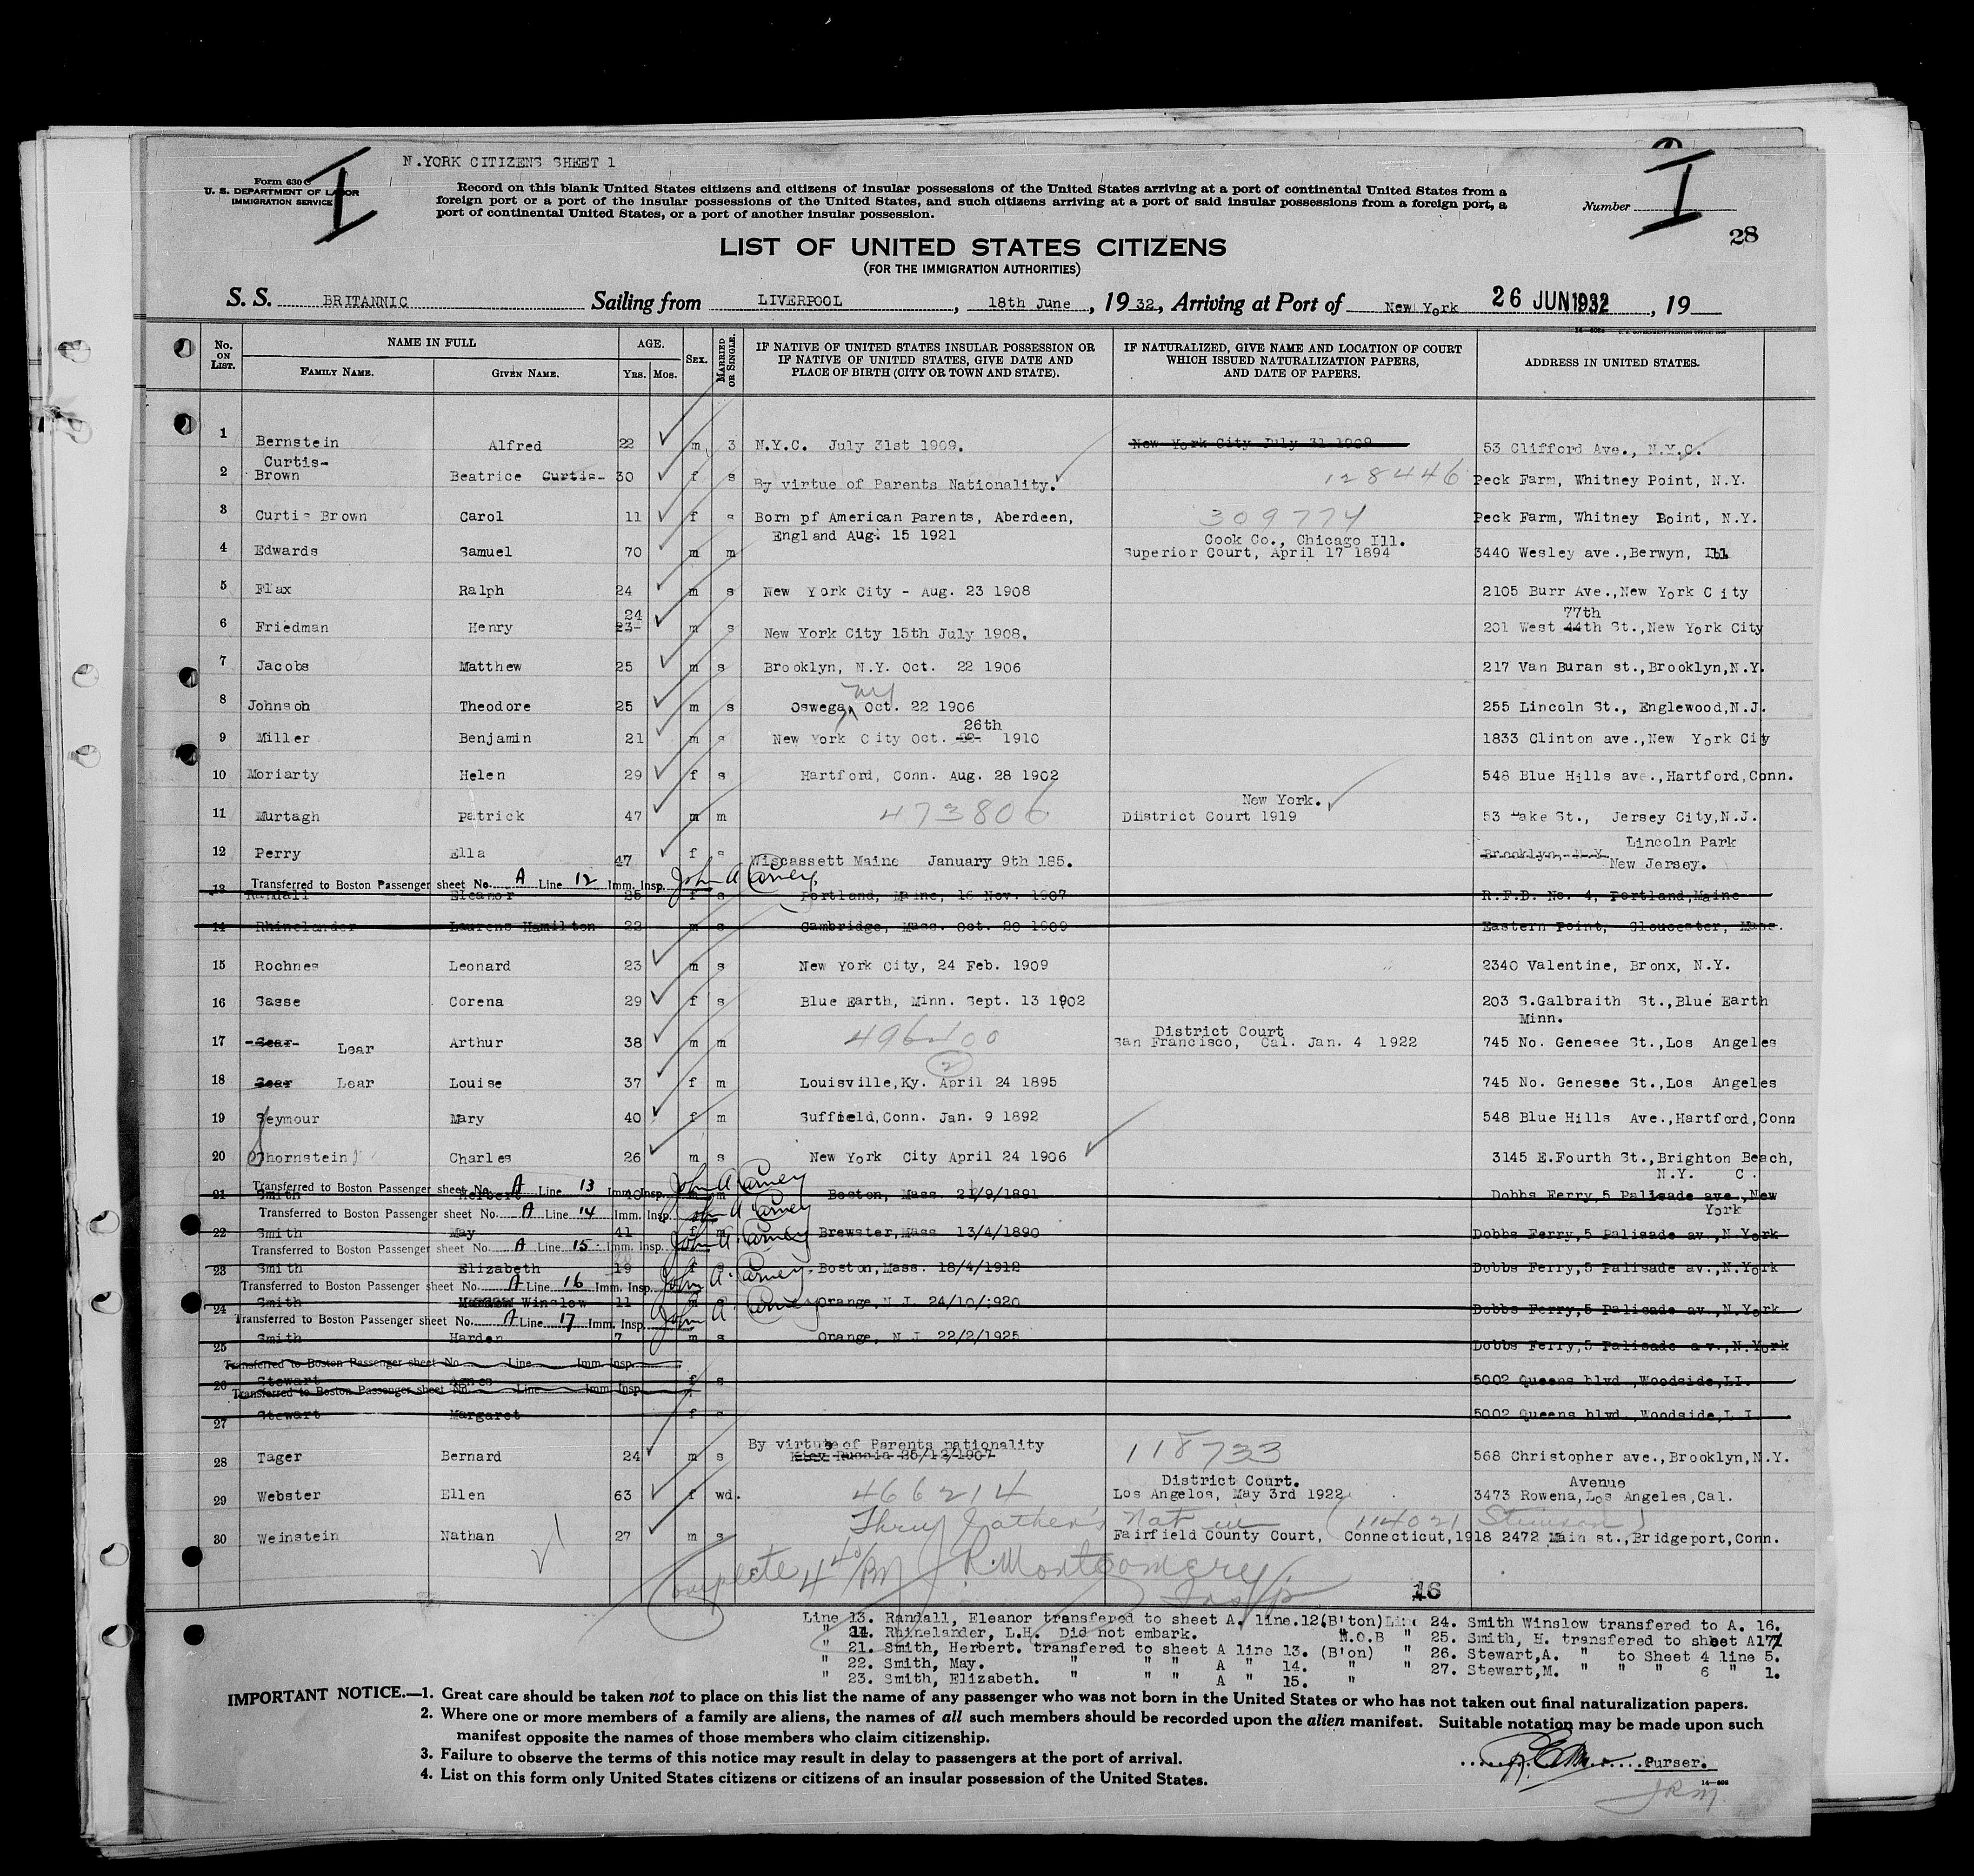 N.YORK CITIZENS SHEET 1
Form 630
U. S. DEPARTMENT OF LABOR
IMMIGRATION SERVICE
I
Record on this blank United States citizens and citizens of insular possessions of the United States arriving at a port of continental United States from a
foreign port or a port of the insular possessions of the United States, and such citizens arriving at a port of said insular possessions from a foreign port, a
port of continental United States, or a port of another insular possession.
Number I
28
LIST OF UNITED STATES CITIZENS
(FOR THE IMMIGRATION AUTHORITIES)
S. S. BRITANNIC Sailing from LIVERPOOL, 18th June, 1932, Arriving at Port of New York 26 JUN 1932, 19
No. ON LIST. NAME IN FULL AGE. SEX. MARRIED OR SINGLE. IF NATIVE OF UNITED STATES INSULAR POSSESSION OR IF NATIVE OF UNITED STATES, GIVE DATE AND PLACE OF BIRTH (CITY OR TOWN AND STATE). IF NATURALIZED, GIVE NAME AND LOCATION OF COURT WHICH ISSUED NATURALIZATION PAPERS, AND DATE OF PAPERS. ADDRESS IN UNITED STATES.
FAMILY NAME. GIVEN NAME. YRS. MOS.
1 Bernstein Alfred 22 m 3 N.Y.C. July 31st 1909. New York City July 31 1909 53 Clifford Ave., N.Y.C.
Curtis-
2 Brown Beatrice Curtis- 30 f s By virtue of Parents Nationality. 128446 Peck Farm, Whitney Point, N.Y.
3 Curtis Brown Carol 11 f s Born pf American Parents, Aberdeen, 309774 Peck Farm, Whitney Point, N.Y.
England Aug. 15 1921 Cook Co., Chicago Ill.
4 Edwards Samuel 70 m m Superior Court, April 17 1894 3440 Wesley ave.,Berwyn, Ill
5 Flax Ralph 24 m s New York City - Aug. 23 1908 2105 Burr Ave.,New York City
24 77th
6 Friedman Henry 23- m s New York City 15th July 1908. 201 West 44th St.,New York City
7 Jacobs Matthew 25 m s Brooklyn, N.Y. Oct. 22 1906 217 Van Buran st.,Brooklyn,N.Y.
NY
8 Johnson Theodore 25 m s Oswega, Oct. 22 1906 255 Lincoln St., Englewood,N.J.
26th
9 Miller Benjamin 21 m s New York City Oct. 22- 1910 1833 Clinton ave.,New York City
10 Moriarty Helen 29 f s Hartford, Conn. Aug. 28 1902 548 Blue Hills ave.,Hartford,Conn.
New York.
11 Murtagh Patrick 47 m m 473806 District Court 1919 53 Lake St., Jersey City,N.J.
12 Perry Ella 47 f s Wiscassett Maine January 9th 185. Brooklyn, N.Y. Lincoln Park
New Jersey.
Transferred to Boston Passenger sheet No. A Line 12 Imm. Insp. John A Carney
13 Randall Eleanor 25 f s Portland, Maine, 16 Nov. 1907 R.F.D. No. 4, Portland,Maine
14 Rhinelander Laurens Hamilton 22 m s Cambridge, Mass. Oct. 20 1909 Eastern Point, Gloucester, Mass.
15 Rochnes Leonard 23 m s New York City, 24 Feb. 1909 2340 Valentine, Bronx, N.Y.
16 Sasse Corena 29 f s Blue Earth, Minn. Sept. 13 1902 203 S.Galbraith St.,Blue Earth
Minn.
District Court
17 Sear- Lear Arthur 38 m m 496400 San Francisco, Cal. Jan. 4 1922 745 No. Genesee St.,Los Angeles
2
18 Sear Lear Louise 37 f m Louisville,Ky. April 24 1895 745 No. Genesee St.,Los Angeles
19 Seymour Mary 40 f m Suffield,Conn. Jan. 9 1892 548 Blue Hills Ave.,Hartford,Conn
20 Thornstein Charles 26 m s New York City April 24 1906 3145 E.Fourth St.,Brighton Beach,
N.Y. C.
Transferred to Boston Passenger sheet No. A Line 13 Imm. Insp. John A Carney
21 Smith Herbert 40 m m Boston, Mass. 21/9/1891 Dobbs Ferry,5 Palisade ave.,New
York
Transferred to Boston Passenger sheet No. A Line 14 Imm. Insp. John A Carney
22 Smith May 41 f m Brewster,Mass 13/4/1890 Dobbs Ferry,5 Palisade av.,N.York
Transferred to Boston Passenger sheet No. A Line 15 Imm. Insp. John A. Carney
23 Smith Elizabeth 19 f s Boston,Mass. 18/4/1912 Dobbs Ferry,5 Palisade av.,N.York
Transferred to Boston Passenger sheet No. A Line 16 Imm. Insp. John A. Carney
24 Smith Winslow 11 m s Orange,N.J. 24/10/1920 Dobbs Ferry,5 Palisade av.,N.York
Transferred to Boston Passenger sheet No. A Line 17 Imm. Insp. John A. Carney
25 Smith Harden 7 m s Orange, N.J. 22/2/1925 Dobbs Ferry,5 Palisade av.,N.York
Transferred to Boston Passenger sheet No. Line Imm. Insp.
26 Stewart Agnes f s 5002 Queens blvd.,Woodside,LI.
Transferred to Boston Passenger sheet No. Line Imm. Insp.
27 Stewart Margaret f s 5002 Queens blvd.,Woodside,L.I.
By virtue of Parents nationality
28 Tager Bernard 24 m s Kiev Russia 25/12/1907 118733 568 Christopher ave.,Brooklyn,N.Y.
District Court. Avenue
29 Webster Ellen 63 f wd. 466214 Los Angelos, May 3rd 1922 3473 Rowena,Los Angeles,Cal.
Thru father's Nat (114021 )
30 Weinstein Nathan 27 m s Fairfield County Court, Connecticut,1918 2472 Main st.,Bridgeport,Conn.
Complete 4 40/PM R. Montgomery
Insp
16
Line 13. Randall, Eleanor transfered to sheet A. line.12(B'ton) Line 24. Smith Winslow transfered to A. 16.
" 14. Rhinelander, L.H. Did not embark. N.O.B " 25. Smith, H. transfered to sheet A17
" 21. Smith, Herbert. transfered to sheet A line 13. (B'on) " 26. Stewart,A. " to Sheet 4 line 5.
" 22. Smith, May. " " " A " 14. " " 27. Stewart,M. " " " 6 " 1.
" 23. Smith, Elizabeth. " " " A " 15. "
IMPORTANT NOTICE.—1. Great care should be taken not to place on this list the name of any passenger who was not born in the United States or who has not taken out final naturalization papers.
2. Where one or more members of a family are aliens, the names of all such members should be recorded upon the alien manifest. Suitable notation may be made upon such
manifest opposite the names of those members who claim citizenship.
3. Failure to observe the terms of this notice may result in delay to passengers at the port of arrival.
4. List on this form only United States citizens or citizens of an insular possession of the United States.
Purser.
14—608
JRM